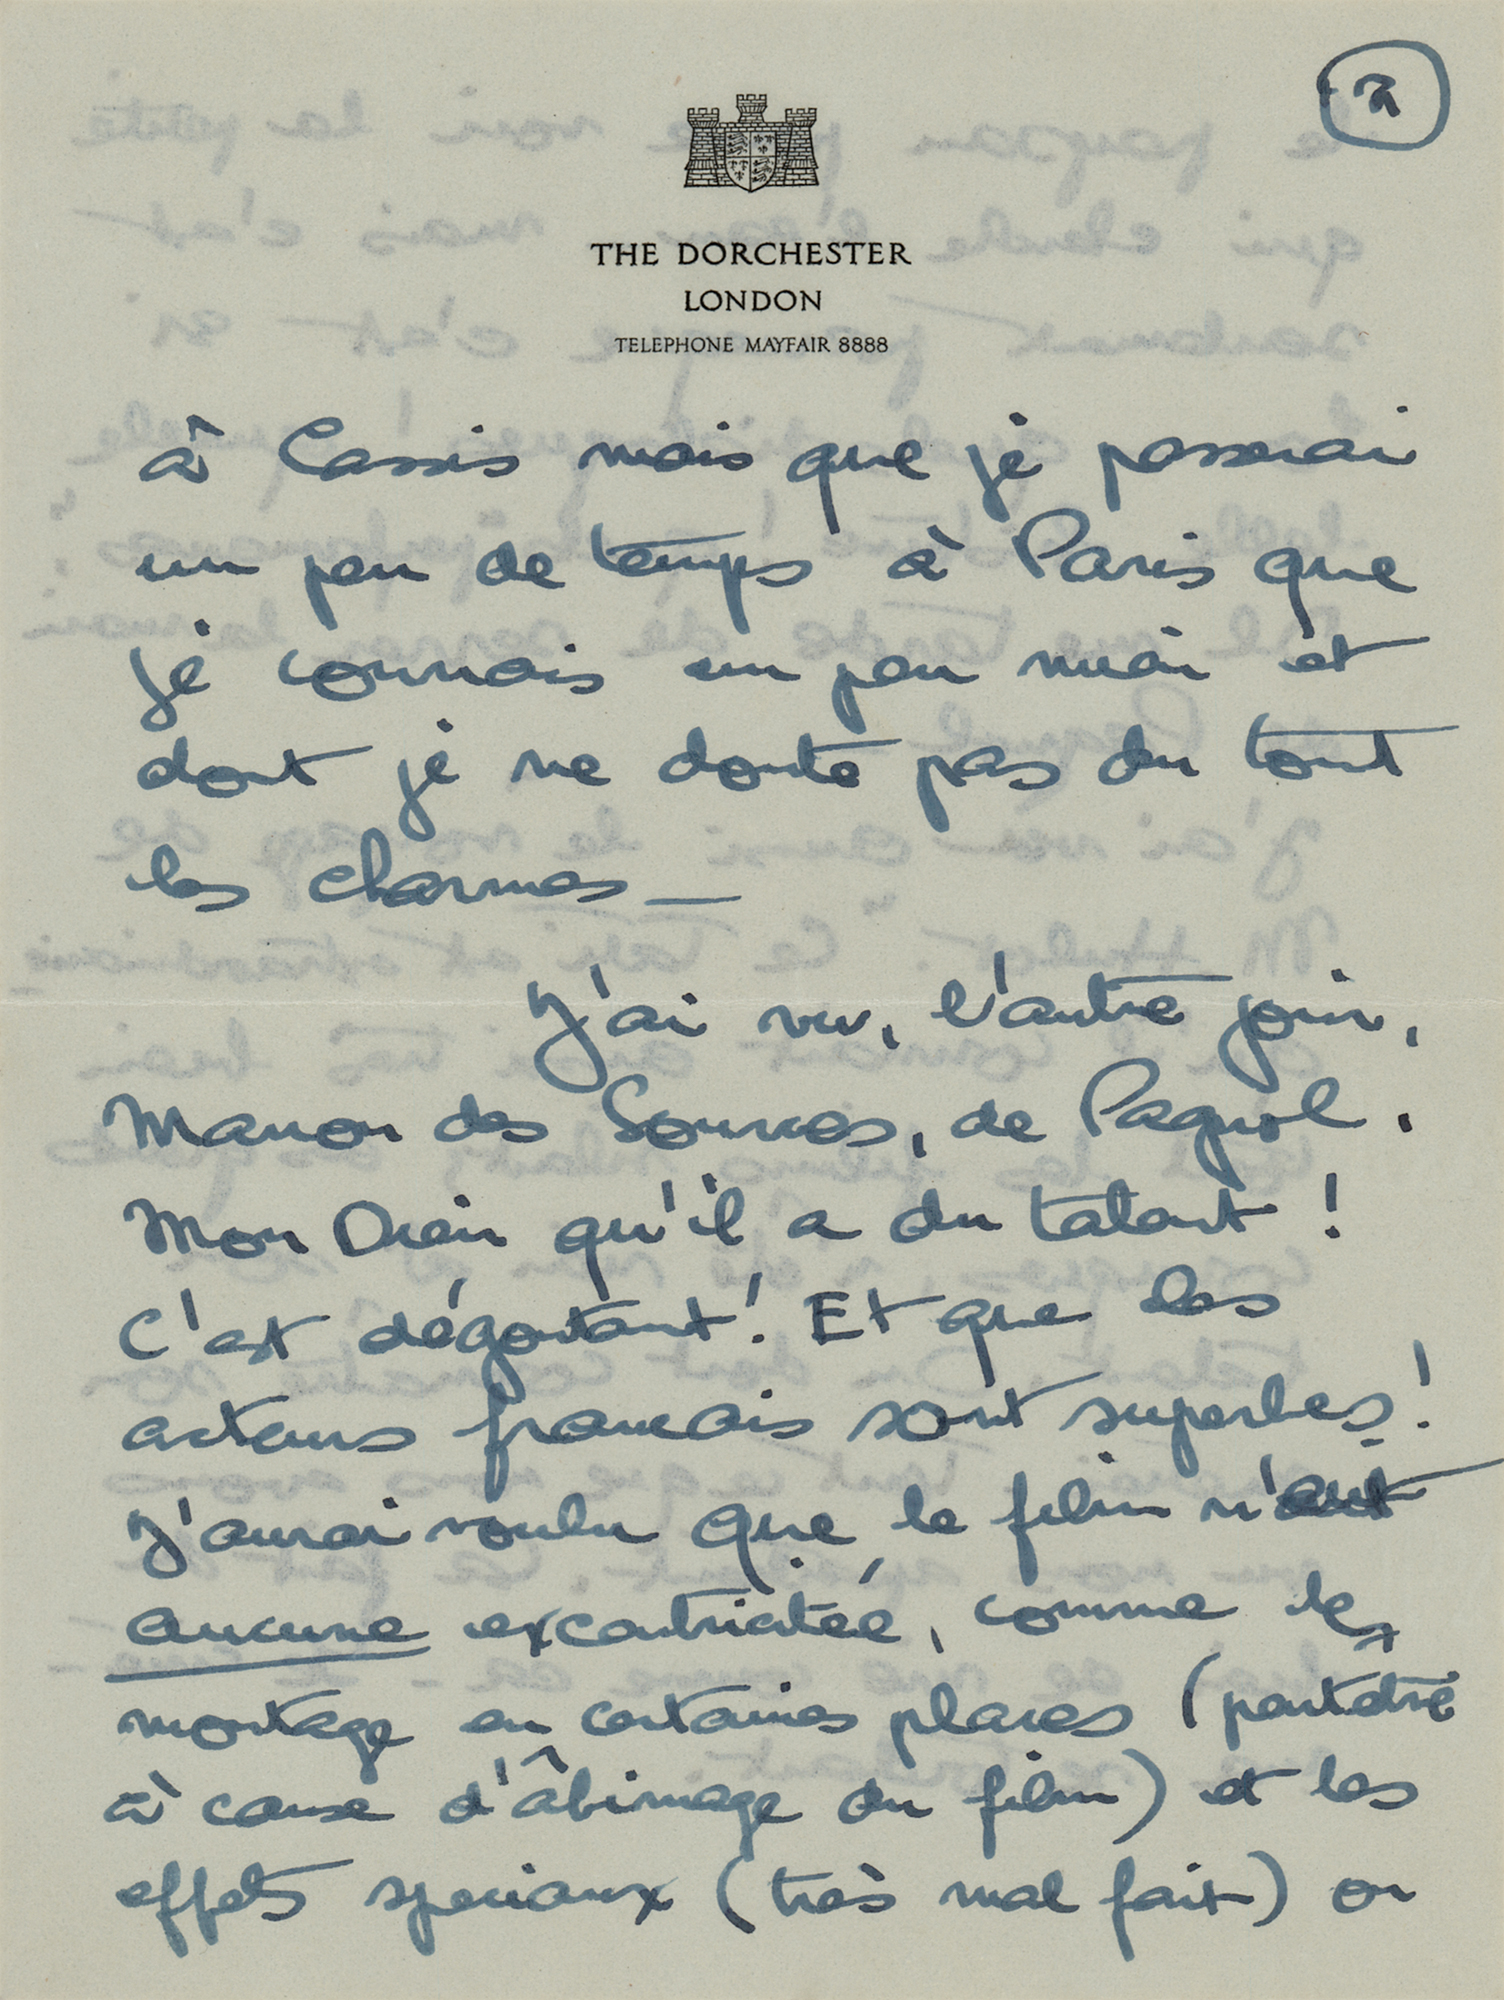 2
THE DORCHESTER
LONDON
TELEPHONE MAYFAIR 8888
à Cassis mais que je passerai
un peu de temps à Paris que
je connais un peu mieux et
dont je ne doute pas du tout
les charmes —
J'ai vu, l'autre jour,
Manon des Sources, de Pagnol.
Mon Dieu qu'il a du talent !
C'est dégoutant ! Et que les
acteurs francais sont superbes !
J'aurai voulu que le film n'eut
aucune excentricitée, comme le
montage en certaines places (peutêtre
à cause d'âbimage du film) et les
effets speciaux (très mal fait) ou